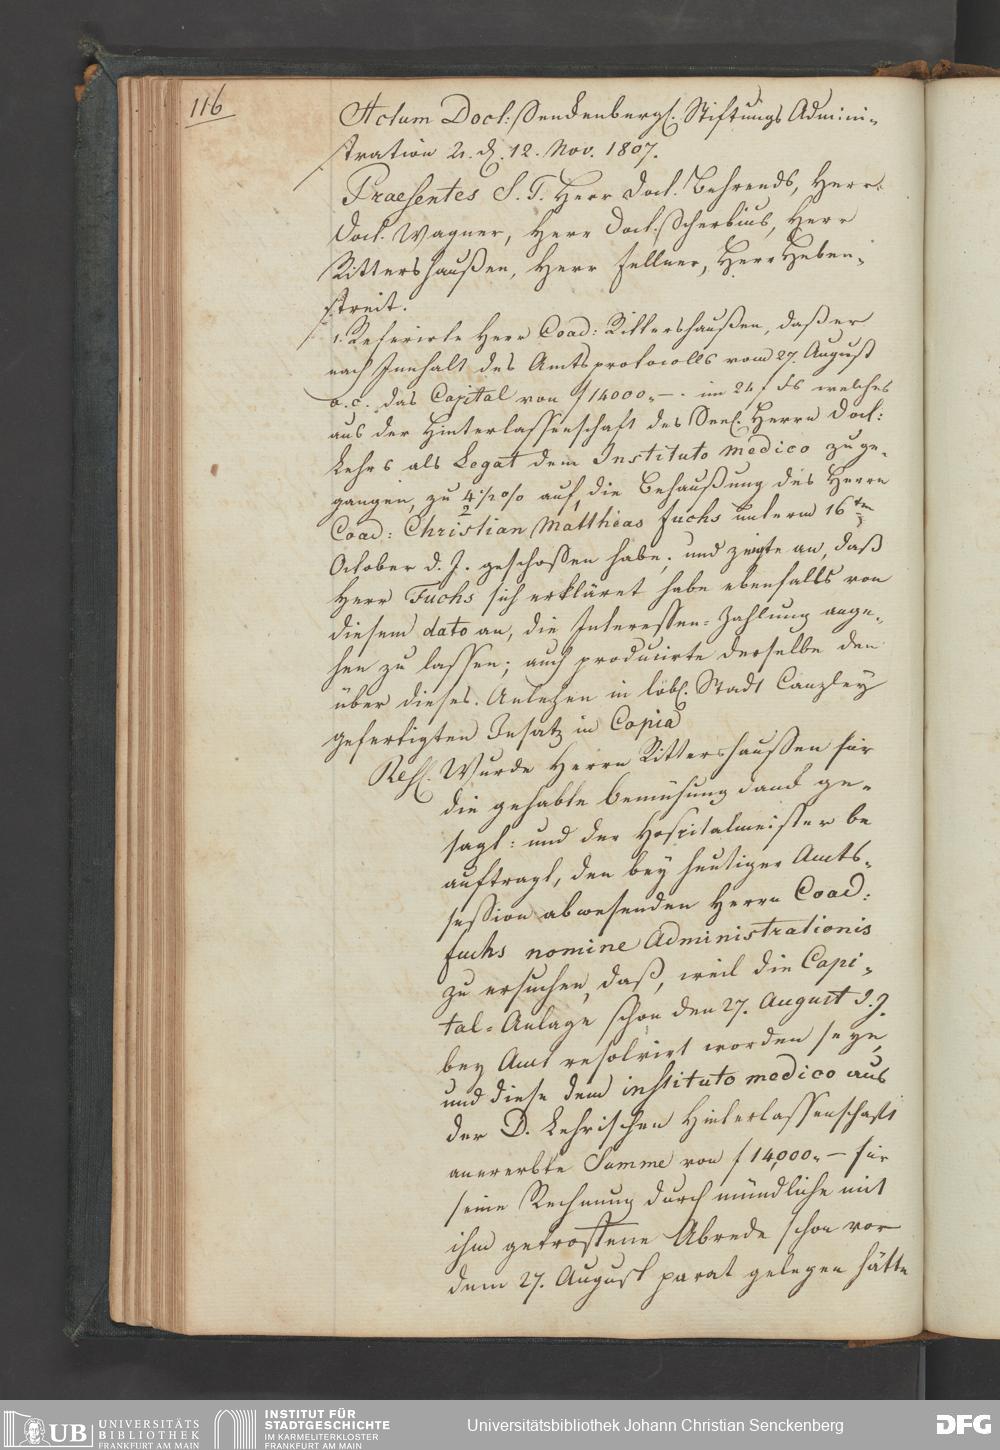 116
Actum Doct: Senckenbergs. Stiftungs Admini-
stration d. 12. Nov. 1807.
Praesentes S. T. Herr Doct. Behrends, Herr
Doct. Wagner, Herr Doct. Scherbius, Herr
Rittershaußen, Herr Fellner, Herr Heben-
streit.
1. Referirte Herr Coad: Rittershaußen, daß er
nach Innhalt des Amtsprotocolls vom 27. August
a. c. das Capital von f 14000.– im 24 f Fs welches
aus der Hinterlassenschaft des Seel. Herrn Doct:
Lehrs als Legat dem Instituto medico zuge-
gangen, zu 4 1/2 % auf die Behaußung des Herrn
Coad: Christian Matthias Fuchs unterm 16ten
October d. J. geschoßen habe; und zeigte an, daß
Herr Fuchs sich erkläret habe ebenfalls von
diesem dato an, die Interessen-Zahlung ange-
hen zu lassen; auch producirte derselbe den
über dieses Anlehen in löbl. Stadt Canzley
gefertigten Insatz in Copia
Resl. Wurde Herrn Rittershaussen für
die gehabte Bemühung danck ge-
sagt: und der Hospitalmeister be
auftragt, den bey heutiger Amts-
session abwesenden Herrn Coad:
Fuchs nomine Administrationis
zu ersuchen, daß, weil die Capi-
tal-Anlage schon den 27. August d. J.
bey Amt resolvirt worden seye,
und diese dem instituto medico aus
der D. Lehrischen Hinterlassenschaft
anererbte Summe von f 14,000.– für
seine Rechnung durch mündliche mit
ihm getroffene Abrede schon vor
dem 27. August parat gelegen hätte
UB UNIVERSITÄTS
BIBLIOTHEK
FRANKFURT AM MAIN
INSTITUT FÜR
STADTGESCHICHTE
IM KARMELITERKLOSTER
FRANKFURT AM MAIN
Universitätsbibliothek Johann Christian Senckenberg
DFG